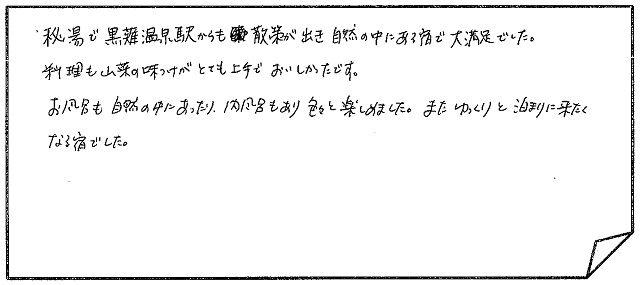 秘湯で黒薙温泉駅からも散策が出き自然の中にある宿で大満足でした。
料理も山菜の味つけがとても上手でおいしかったです。
お風呂も自然の中にあったり、内風呂もあり色々と楽しめました。またゆっくりと泊まりに来たく
なる宿でした。